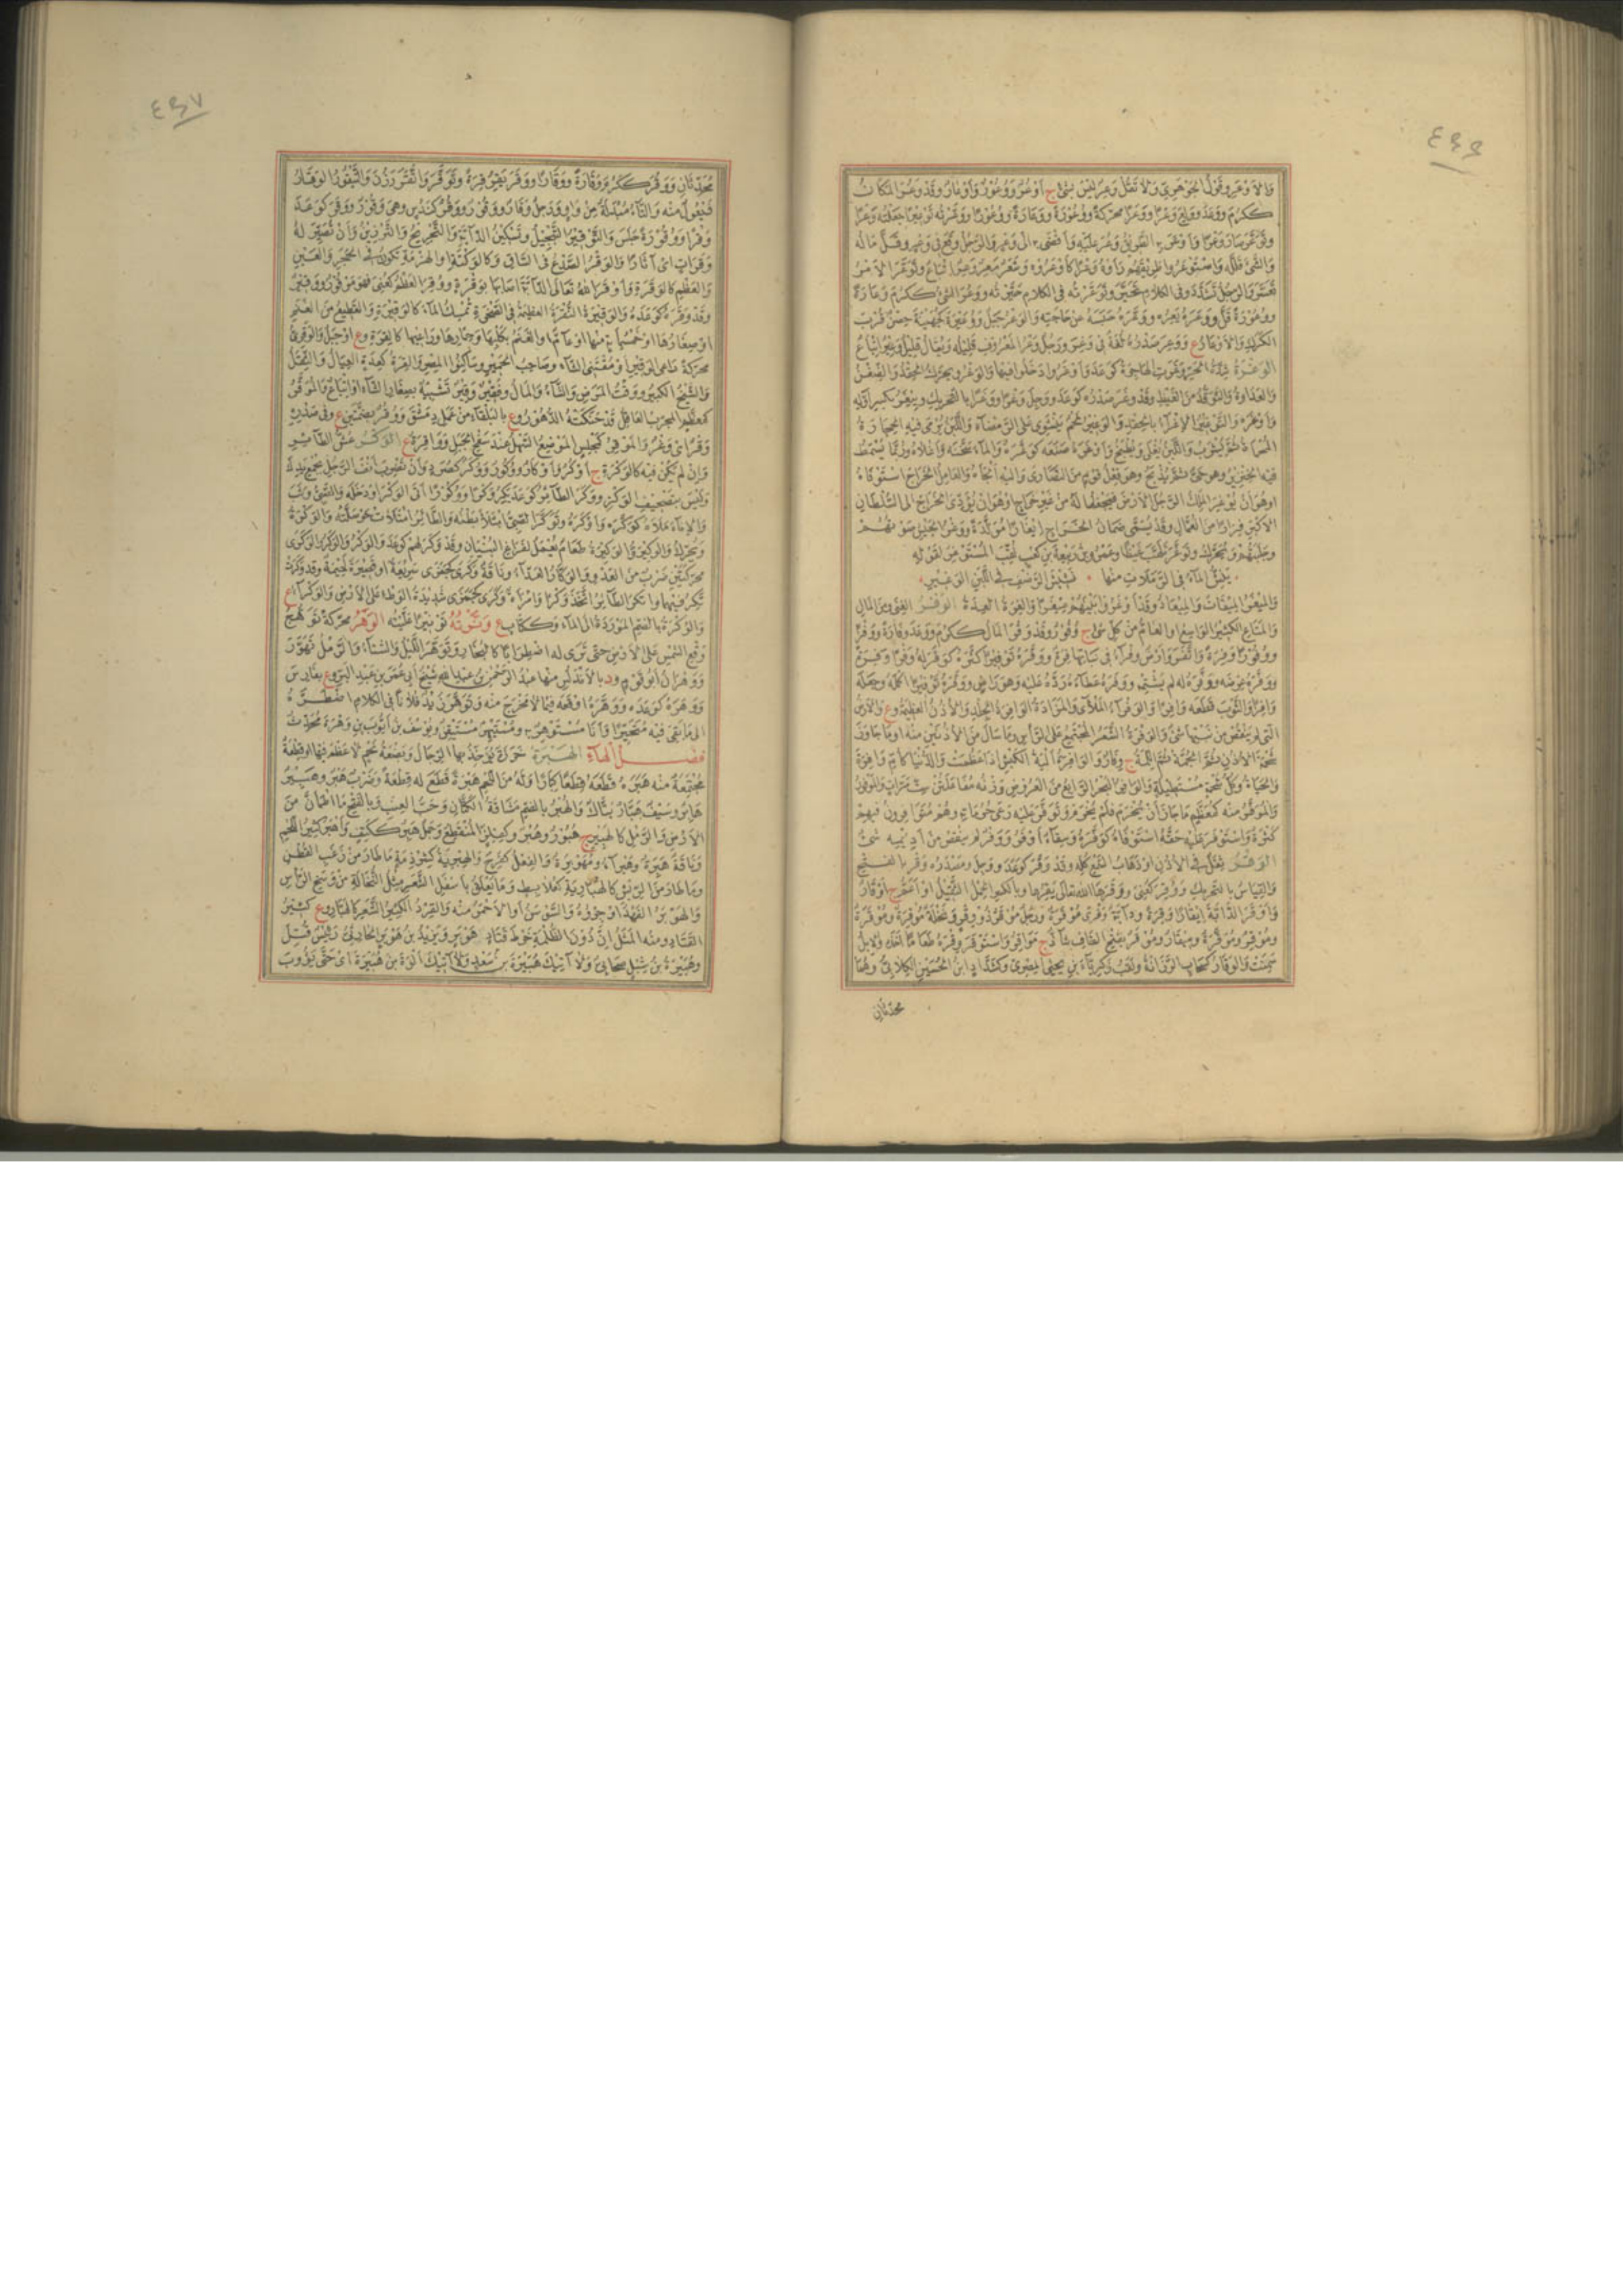 ٤٩٦
وَالْاَوْعَرِ وَقَوْلُ الجَوْهَرِىّ وَلَا تَقُلْ وَعِرٌ لَيْسَ بِشَىْءٍ ج اَوْعُرٌ وَوُعُورٌ وَاَوْعَارٌ وَقَدْ وَعَرَ المَكَانُ
ككَرُمَ ووَعَدَ ووَلِعَ وَعْرًا ووَعَرًا محرّكةً ووُعُورَةً ووَعَارَةً ووُعُورًا ووَعَّرْتُه تَوْعِيرًا جَعَلْتُه وَعْرًا
وتَوَعَّرَ صَارَ وَعْرًا وَاَوْعَرَ به الطَّرِيقُ وَعُرَ عَلَيْهِ وَاَفْضَى به الى وَعْرٍ وَالرَّجُلُ وَقَعَ فى وَعْرٍ وقَلَّ مَالُه
وَالشَّىْءَ قَلَّلَه وَاسْتَوْعَرُوا طَرِيقَهُمْ رَاَوْهُ وَعْرًا كَاَوْعَرُوه وَشَعْرٌ مَعِرٌ وَعِرٌ اِتْبَاعٌ وتَوَعَّرَ الاَمْرُ
تَعَسَّرَ وَالرَّجُلُ تَشَدَّدَ وفى الكَلَامِ تَحَيَّرَ وتَوَعَّرْتُه فى الكَلَامِ حَيَّرْتُه ووَعُرَ الشَّىْءُ ككَرُمَ وَعَارَةً
ووُعُورَةً قَلَّ ووَعَرَهُ يَعِرُه ووَعَّرَهُ حَبَسَهُ عَنْ حَاجَتِهِ وَالوَعْرُ جَبَلٌ وَوُعَيْرَةُ كجُهَيْنَةَ حِصْنٌ قُرْبَ
الكَرَكِ وَالاَوْعَارُ ع ووَعِرَ صَدْرُهُ لُغَةٌ فى وَغِرَ ورَجُلٌ وَعْرُ المَعْرُوفِ قَلِيلُه ويُقَالُ قَلِيلٌ وَعْرٌ اِتْبَاعٌ
الوَغْرَةُ شِدَّةُ الحَرِّ وَغَرَتِ الهَاجِرَةُ كوَعَدَ وَاَوْغَرُوا دَخَلُوا فيهَا وَالوَغْرُ ويُحَرَّكُ الحِقْدُ وَالضِّغْنُ
وَالعَدَاوَةُ وَالتَّوَقُّدُ مِنَ الغَيْظِ وَقَدْ وَغِرَ صَدْرُهُ كوَعَدَ ووَجِلَ وَغْرًا ووَغَرًا بالتَّحْرِيكِ ويِيغَرُ بكَسْرِ اَوَّلِه
وَاَوْغَرَه وَالتَّوْغِيرُ الاِغْرَاءُ بالحِقْدِ وَالوَغِيرُ لَحْمٌ يَنْشَوِى عَلَى الرَّمْضَاءِ وَاللَّبَنُ تُرْمَى فِيهِ الحِجَارَةُ
المُحْمَاةُ ثُمَّ يُشْرَبُ وَاللَّبَنُ يُغْلَى ويُطْبَخُ وَاَوْغَرَهُ صَنَعَه كوَغَّرَهُ وَالمَاءَ سَخَّنَهُ وَاَغْلَاهُ ورُبَّمَا يُسْمَطُ
فيه الخِنْزِيرُ وهو حَىٌّ ثُمَّ يُذْبَحُ وهو فِعْلُ قَوْمٍ مِنَ النَّصَارَى وَاِلَيْهِ اَلْجَاَهُ وَالعَامِلُ الخَرَاجَ اسْتَوْفَاهُ
اوهو اَنْ يُوغِرَ المَلِكُ الرَّجُلَ الاَرْضَ فيَجْعَلَهَا لَهُ مِنْ غَيْرِ خَرَاجٍ اوهُوَ اَنْ يُؤَدِّىَ الخَرَاجَ الى السُّلْطَانِ
الاَكْبَرِ فِرَارًا مِنَ العُمَّالِ وقَدْ يُسَمَّى ضَمَانُ الخَرَاجِ اِيغَارًا مُوَلَّدَةٌ ووَغْرُ الجَيْشِ صَوْتُهُمْ
وجَلَبَتُهُمْ ويُحَرَّكُ وتَوَغَّرَ تَلَهَّبَ غَيْظًا وعَمْرُو بْنُ رَبِيعَةَ بْنِ كَعْبٍ لُقِّبَ المُسْتَوْغِرَ لِقَوْلِهِ
يَنِشُّ المَاءُ فى الرَّبَلَاتِ مِنْهَا ٠ نَشِيشَ الرَّضْفِ فى اللَّبَنِ الوَغِيرِ
وَالمِيغَرُ المِيقَاتُ وَالمِيعَادُ وقَدْ اَوْغَرُوا بَيْنَهُمْ مِيغَرًا وَالغِرَةُ العِدَةُ الوَفْرُ الغِنَى ومِنَ المَالِ
وَالمَتَاعِ الكَثِيرُ الوَاسِعُ او العَامُّ مِنْ كُلِّ شَىْءٍ ج وُفُورٌ وقَدْ وَفُرَ المَالُ ككَرُمَ ووَعَدَ وَفَارَةً ووَفْرًا
ووُفُورًا وَفِرَةً وَاتَّفَرَ وَاَرْضٌ وَفْرَاءُ فى نَبَاتِهَا فِرَةٌ ووَفَّرَهُ تَوْفِيرًا كَثَّرَهُ كوَفَرَ لَهُ وَفْرًا وفِرَةً
ووَفَّرَهُ عِرْضَه ووَفَرَهُ لَه لَمْ يَشْتِمْه ووَفَرَهُ عَطَاءَهُ رَدَّهُ عَلَيْه وَهُوَ رَاضٍ ووَفَّرَهُ تَوْفِيرًا اَكْمَلَهُ وجَعَلَه
وَافِرًا وَالثَّوْبَ قَطَعَه وَافِرًا وَالوَفْرَاءُ المَلْاَى وَالمَزَادَةُ الوَافِرَةُ الجِلْدِ وَالاُذُنُ العَظِيمَةُ وع وَالاَرْضُ
الَّتِى لَمْ يَنْقُصْ مِنْ نَبْتِهَا شَىْءٌ وَالوَفْرَةُ الشَّعَرُ المُجْتَمِعُ عَلَى الرَّاْسِ ومَا سَالَ مِنَ الاُذُنَيْنِ منه او مَا جَاوَزَ
شَحْمَةَ الاُذُنِ ثُمَّ الجُمَّةُ ثُمَّ اللِّمَّةُ ج وِفَارٌ وَالوَافِرَةُ اَلْيَةُ الكَبْشِ اذَا عَظُمَتْ وَالدُّنْيَا كَاُمِّ وَافِرَةَ
وَالحَيَاةُ وكُلُّ شَحْمَةٍ مُسْتَطِيلَةٍ وَالوَافِرُ البَحْرُ الرَّابِعُ مِنَ العَرُوضِ وَزْنُه مُفَاعَلَتُنْ سِتَّ مَرَّاتٍ وَالمَوْفُورُ
وَالمُوَفَّرُ منه كمُعَظَّمٍ مَا جَازَ اَنْ يُخْرَمَ فَلَمْ يُخْرَمْ وتَوَفَّرَ عَلَيْه رَعَى حُرُمَاتِهِ وهُمْ مُتَوَافِرُونَ فيهِمْ
كَثْرَةٌ وَاسْتَوْفَرَ عَلَيْه حَقَّهُ اسْتَوْفَاهُ كوَفَّرَهُ وَسِقَاءٌ اَوْفَرُ وَوَفْرٌ لَمْ يَنْقُصْ مِنْ اَدِيمِهِ شَىْءٌ
الوَقْرُ ثِقَلٌ فى الاُذُنِ اوذَهَابُ السَّمْعِ كُلِّه وقَدْ وَقَرَ كوَعَدَ ووَجِلَ ومَصْدَرُه وَقْرٌ بالفَتْحِ
وَالقِيَاسُ بالتَّحْرِيكِ وَوُقِرَ كعُنِىَ ووَقَرَهَا اللهُ تعالى يَقِرُهَا وبالكَسْرِ الحِمْلُ الثَّقِيلُ اوْ اَعَمُّ ج اَوْقَارٌ
وَاَوْقَرَ الدَّابَّةَ اِيقَارًا وقِرَةً ودَابَّةٌ وَقْرَى مُوقَرَةٌ ورَجُلٌ مُوقَرٌ ذُو وِقْرٍ ونَخْلَةٌ مُوقِرَةٌ ومُوقَرَةٌ
ومُوقِرٌ ومُوَقَّرَةٌ ومِيقَارٌ ومُوقَرٌ بفَتْحِ القَافِ شَاذٌّ ج مَوَاقِرُ وَاسْتَوْقَرَ وِقْرَهُ طَعَامًا اَخَذَهُ وَالاِبِلُ
سَمِنَتْ وَالوَقَارُ كسَحَابٍ الرَّزَانَةُ ولَقَبُ زَكَرِيَّاءَ بْنِ يَحْيَى المِصْرِىّ وكشَدَّادٍ ابْنُ الحُسَيْنِ الكِلَابِىُّ وهُمَا
محدّثان
٤٩٧
مُحَدِّثَانِ وَوَقُرَ ككَرُمَ وَقَارَةً ووَقَارًا ووَقَرَ يَقِرُ قِرَةً وتَوَقَّرَ وَاتَّقَرَ رَزُنَ وَالتَّيْقُورُ الوَقَارُ
فَيْعُولٌ منه وَالتَّاءُ مُبْدَلَةٌ مِنْ وَاوٍ ورَجُلٌ وَقَارٌ ووَقُورٌ ووَقُرٌ كنَدُسٍ وهِىَ وَقُورٌ ووَقَرَ كوَعَدَ
وَقْرًا ووُقُورَةً جَلَسَ وَالتَّوْقِيرُ التَّبْجِيلُ وتَسْكِينُ الدَّابَّةِ وَالتَّجْرِيحُ وَالتَّزْيِينُ وَاَنْ تُصَيِّرَ لَهُ
وَقَرَاتٍ اى آثَارًا وَالوَقْرُ الصَّدْعُ فى السَّاقِ وَكالوَكْتَةِ او الهَزْمَةِ تَكُونُ فى الحَجَرِ وَالعَيْنِ
وَالعَظْمِ كالوَقْرَةِ وَاَوْقَرَ اللهُ تَعَالَى الدَّابَّةَ اَصَابَهَا بوَقْرَةٍ ووُقِرَ العَظْمُ كعُنِىَ فهو مَوْقُورٌ ووَقِيرٌ
وقَدْ وَقَرَهُ كوَعَدَهُ وَالوَقِيرَةُ النُّقْرَةُ العَظِيمَةُ فى الصَّخْرَةِ تُمْسِكُ المَاءَ كالوَقِيرِ وَالقَطِيعُ مِنَ الغَنَمِ
او صِغَارُهَا او خَمْسُمِائَةٍ مِنْهَا او عَامٌّ او الغَنَمُ بكَلْبِهَا وحِمَارِهَا ورَاعِيهَا كالقِرَةِ وع او جَبَلٌ وَالوَقَرِىُّ
محرّكةً رَاعِى الوَقِيرِ اوْ مُقْتَنِى الشَّاءِ وصَاحِبُ الحَمِيرِ وسَاكِنُوا المِصْرِ وَالقِرَةُ كعِدَةٍ العِيَالُ وَالثِّقَلُ
وَالشَّيْخُ الكَبِيرُ ووَقْتُ المَرَضِ وَالشَّاءُ وَالمَالُ وفَقِيرٌ وَقِيرٌ تَشْبِيهٌ بصِغَارِ الشَّاءِ او اِتْبَاعٌ وَالمُوَقَّرُ
كمُعَظَّمٍ المُجَرَّبُ العَاقِلُ قَدْ حَنَّكَتْهُ الدُّهُورُ وع بالبَلْقَاءِ مِنْ عَمَلِ دِمَشْقَ ووُقُرٌ بضَمَّتَيْنِ ع وفى صَدْرِهِ
وَقْرٌ اى وَغْرٌ وَالمَوْقِرُ كمَجْلِسٍ المَوْضِعُ السَّهْلُ عِنْدَ سَفْحِ الجَبَلِ ووَاقِرَةُ ع الوَكْرُ عُشُّ الطَّائِرِ
وَاِنْ لَمْ يَكُنْ فِيه كالوَكْرَةِ ج اَوْكُرٌ وَاَوْكَارٌ ووُكُورٌ ووُكَرٌ كصُرَدٍ وَاَنْ تَضْرِبَ اَنْفَ الرَّجُلِ بجُمْعِ يَدِكَ
وَلَيْسَ بتَصْحِيفِ الوَكْزِ ووَكَرَ الطَّائِرُ كوَعَدَ يَكِرُ وَكْرًا ووُكُورًا اَتَى الوَكْرَ اودَخَلَه وَالظَّبْىُ وَثَبَ
وَالاِنَاءَ مَلَاَهُ كوَكَّرَه وَاَوْكَرَهُ وتَوَكَّرَ الصَّبِىُّ امْتَلَاَ بَطْنُه وَالطَّائِرُ امْتَلَاَتْ حَوْصَلَتُه وَالوَكْرَةُ
ويُحَرَّكُ وَالوَكِيرُ وَالوَكِيرَةُ طَعَامٌ يُعْمَلُ لفَرَاغِ البُنْيَانِ وقَدْ وَكَرَ لَهُمْ كوَعَدَ وَالوَكْرُ وَالوَكَرُ وَالوَكَرَى
محرّكتَيْنِ ضَرْبٌ مِنَ العَدْوِ وَالوَكَّارُ العَدَّاءُ ونَاقَةٌ وَكَرَى كجَمَزَى سَرِيعَةٌ او قَصِيرَةٌ لَحِيمَةٌ وقَدْ وَكَرَتْ
تَكِرُ فيهِمَا وَاتَّكَرَ الطَّائِرُ اتَّخَذَ وَكْرًا وَامْرَاَةٌ وَكَرَى كجَمَزَى شَدِيدَةُ الوَطْءِ عَلَى الاَرْضِ وَالوَكْرَاءُ ع
وَالوُكْرَةُ بالضَّمِّ المَوْرَدَةُ الى المَاءِ وككِتَابٍ ع وَنَّرْتُهُ تَوْنِيرًا عَلَّيْتُه الوَهَرُ محرّكةً تَوَهُّجُ
وَقْعِ الشَّمْسِ عَلَى الاَرْضِ حَتَّى تَرَى لَه اضْطِرَابًا كالبُخَارِ وتَوَهَّرَ اللَّيْلُ وَالشِّتَاءُ وَالرَّمْلُ تَهَوَّرَ
ووَهْرَانُ اَبُو قَوْمٍ ود بالاَنْدَلُسِ مِنْهَا عَبْدُ الرَّحْمَنِ بْنُ عَبْدِ اللهِ شَيْخُ اَبِى عُمَرَ بْنِ عَبْدِ البَرِّ وع بفَارِسَ
ووَهَرَهُ كوَعَدَه ووَهَّرَهُ اَوْقَعَه فيمَا لَا مَخْرَجَ منه وتَوَهَّرَ زَيْدٌ فُلَانًا فى الكَلَامِ اضْطَرَّهُ
الى مَا بَقِىَ فيه مُتَحَيِّرًا وَاَنَا مُسْتَوْهِرٌ به ومُسْتَيْهِرٌ مُسْتَيْقِنٌ ويُوسُفُ بْنُ اَيُّوبَ بْنِ وَهْرَةَ مُحَدِّثٌ
فصل الهاء الهَبْرَةُ خَرَزَةٌ يُؤَخَّذُ بِهَا الرِّجَالُ وبَضْعَةُ لَحْمٍ لا عَظْمَ فيهَا او قِطْعَةٌ
مُجْتَمِعَةٌ منه هَبَرَهُ قَطَعَهُ قِطَعًا كِبَارًا ولَهُ مِنَ اللَّحْمِ هَبْرَةً قَطَعَ لَه قِطْعَةً وضَرْبٌ هَبْرٌ وهَبِيرٌ
هَابِرٌ وسَيْفٌ هَبَّارٌ بَتَّاكٌ وَالهُبْرُ بالضَّمِّ مُشَاقَةُ الكَتَّانِ وحَبُّ العِنَبِ وبالفَتْحِ مَا اطْمَاَنَّ مِنَ
الاَرْضِ وَالرَّمْلِ كالهَبِيرِ ج هُبُورٌ وهُبْرٌ وكفِلِزٍّ المُنْقَطِعُ وجَمَلٌ هَبِرٌ ككَتِفٍ وَاَهْبَرُ كَثِيرُ اللَّحْمِ
ونَاقَةٌ هَبِرَةٌ وهَبْرَاءُ ومُهَوْبِرَةٌ وَالفِعْلُ كفَرِحَ وَالهِبْرِيَةُ كشِرْذِمَةٍ مَا طَارَ مِنْ زَغَبِ القُطْنِ
ومَا طَارَ مِنَ الرِّيشِ كالهُبَّارِيَةِ كعُلَابِطٍ ومَا يَتَعَلَّقُ بِاَسْفَلِ الشَّعَرِ مِثْلُ النُّخَالَةِ مِنْ وَسَخِ الرَّاْسِ
وَالهَوْبَرُ الفَهْدُ او جِرْوُهُ وَالسَّوْسَنُ او الاَحْمَرُ منه وَالقِرْدُ الكَثِيرُ الشَّعَرِ كالهَبَّارِ وع كَثِيرُ
القَتَادِ ومنه المَثَلُ اِنَّ دُونَ الظُّلْمَةِ خَرْطَ قَتَادِ هَوْبَرٍ ويَزِيدُ بْنُ هَوْبَرٍ الحَارِثِىُّ رَئِيسٌ قُتِلَ
وهُبَيْرَةُ بْنُ شِبْلٍ صَحَابِىٌّ ولَا آتِيكَ هُبَيْرَةَ بْنَ سَعْدٍ ولَا آتِيكَ اَلْوَةَ بْنَ هُبَيْرَةَ اى حَتَّى يَؤُوبَ